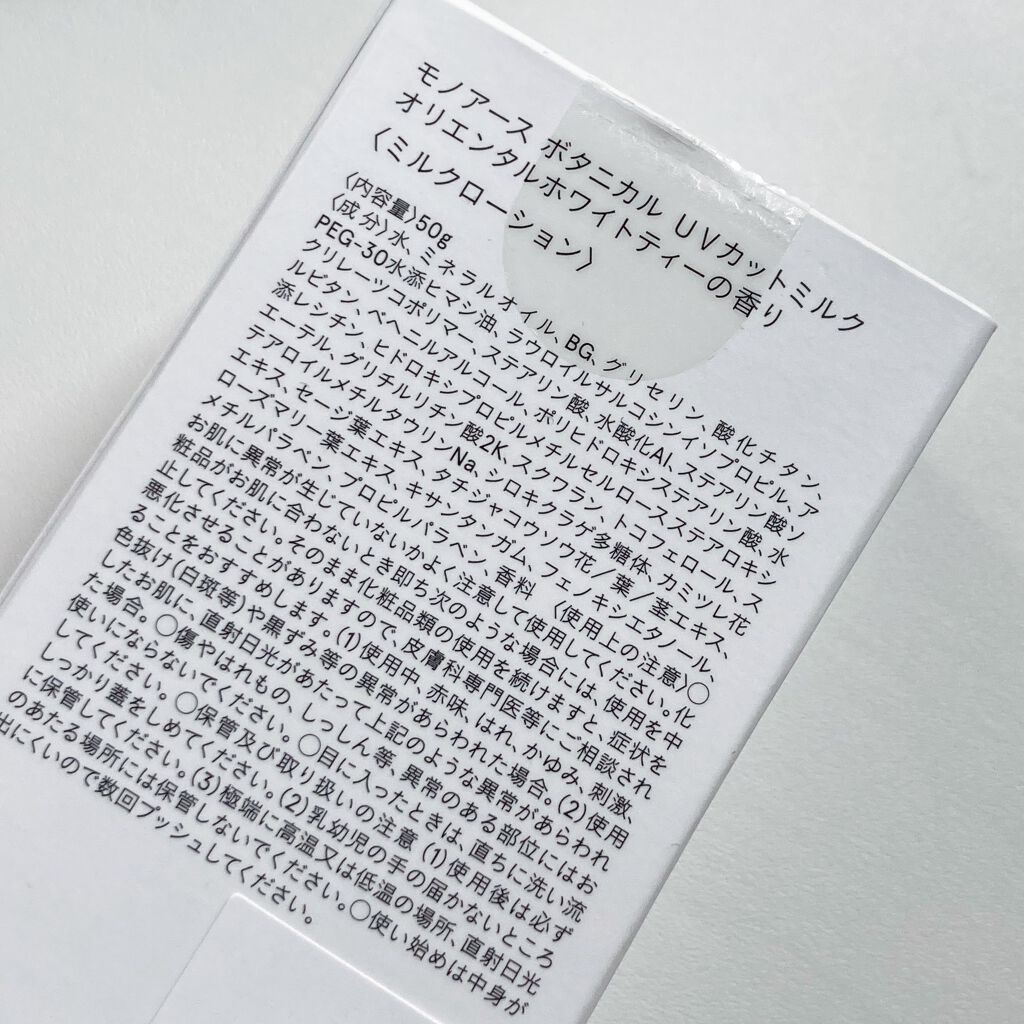 モノアース ボタニカル UVカットミルク
オリエンタルホワイトティーの香り
〈ミルクローション〉
〈内容量〉50g
〈成分〉水、ミネラルオイル、BG、グリセリン、酸化チタン、
PEG-30水添ヒマシ油、ラウロイルサルコシンイソプロピル、ア
クリレーツコポリマー、ステアリン酸、水酸化Al、ステアリン酸ソ
ルビタン、ベヘニルアルコール、ポリヒドロキシステアリン酸、水
添レシチン、ヒドロキシプロピルメチルセルロースステアロキシ
エーテル、グリチルリチン酸2K、スクワラン、トコフェロール、ス
テアロイルメチルタウリンNa、シロキクラゲ多糖体、カミツレ花
エキス、セージ葉エキス、タチジャコウソウ花/葉/茎エキス、
ローズマリー葉エキス、キサンタンガム、フェノキシエタノール、
メチルパラベン、プロピルパラベン、香料 〈使用上の注意〉○
お肌に異常が生じていないかよく注意して使用してください。化
粧品がお肌に合わないとき即ち次のような場合には、使用を中
止してください。そのまま化粧品類の使用を続けますと、症状を
悪化させることがありますので、皮膚科専門医等にご相談され
ることをおすすめします。(1)使用中、赤味、はれ、かゆみ、刺激、
色抜け(白斑等)や黒ずみ等の異常があらわれた場合。(2)使用
したお肌に、直射日光があたって上記のような異常があらわれ
た場合。○傷やはれもの、しっしん等、異常のある部位にはお
使いにならないでください。○目に入ったときは、直ちに洗い流
してください。○保管及び取り扱いの注意 (1)使用後は必ず
しっかり蓋をしめてください。(2)乳幼児の手の届かないところ
に保管してください。(3)極端に高温又は低温の場所、直射日光
のあたる場所には保管しないでください。○使い始めは中身が
出にくいので数回プッシュしてください。